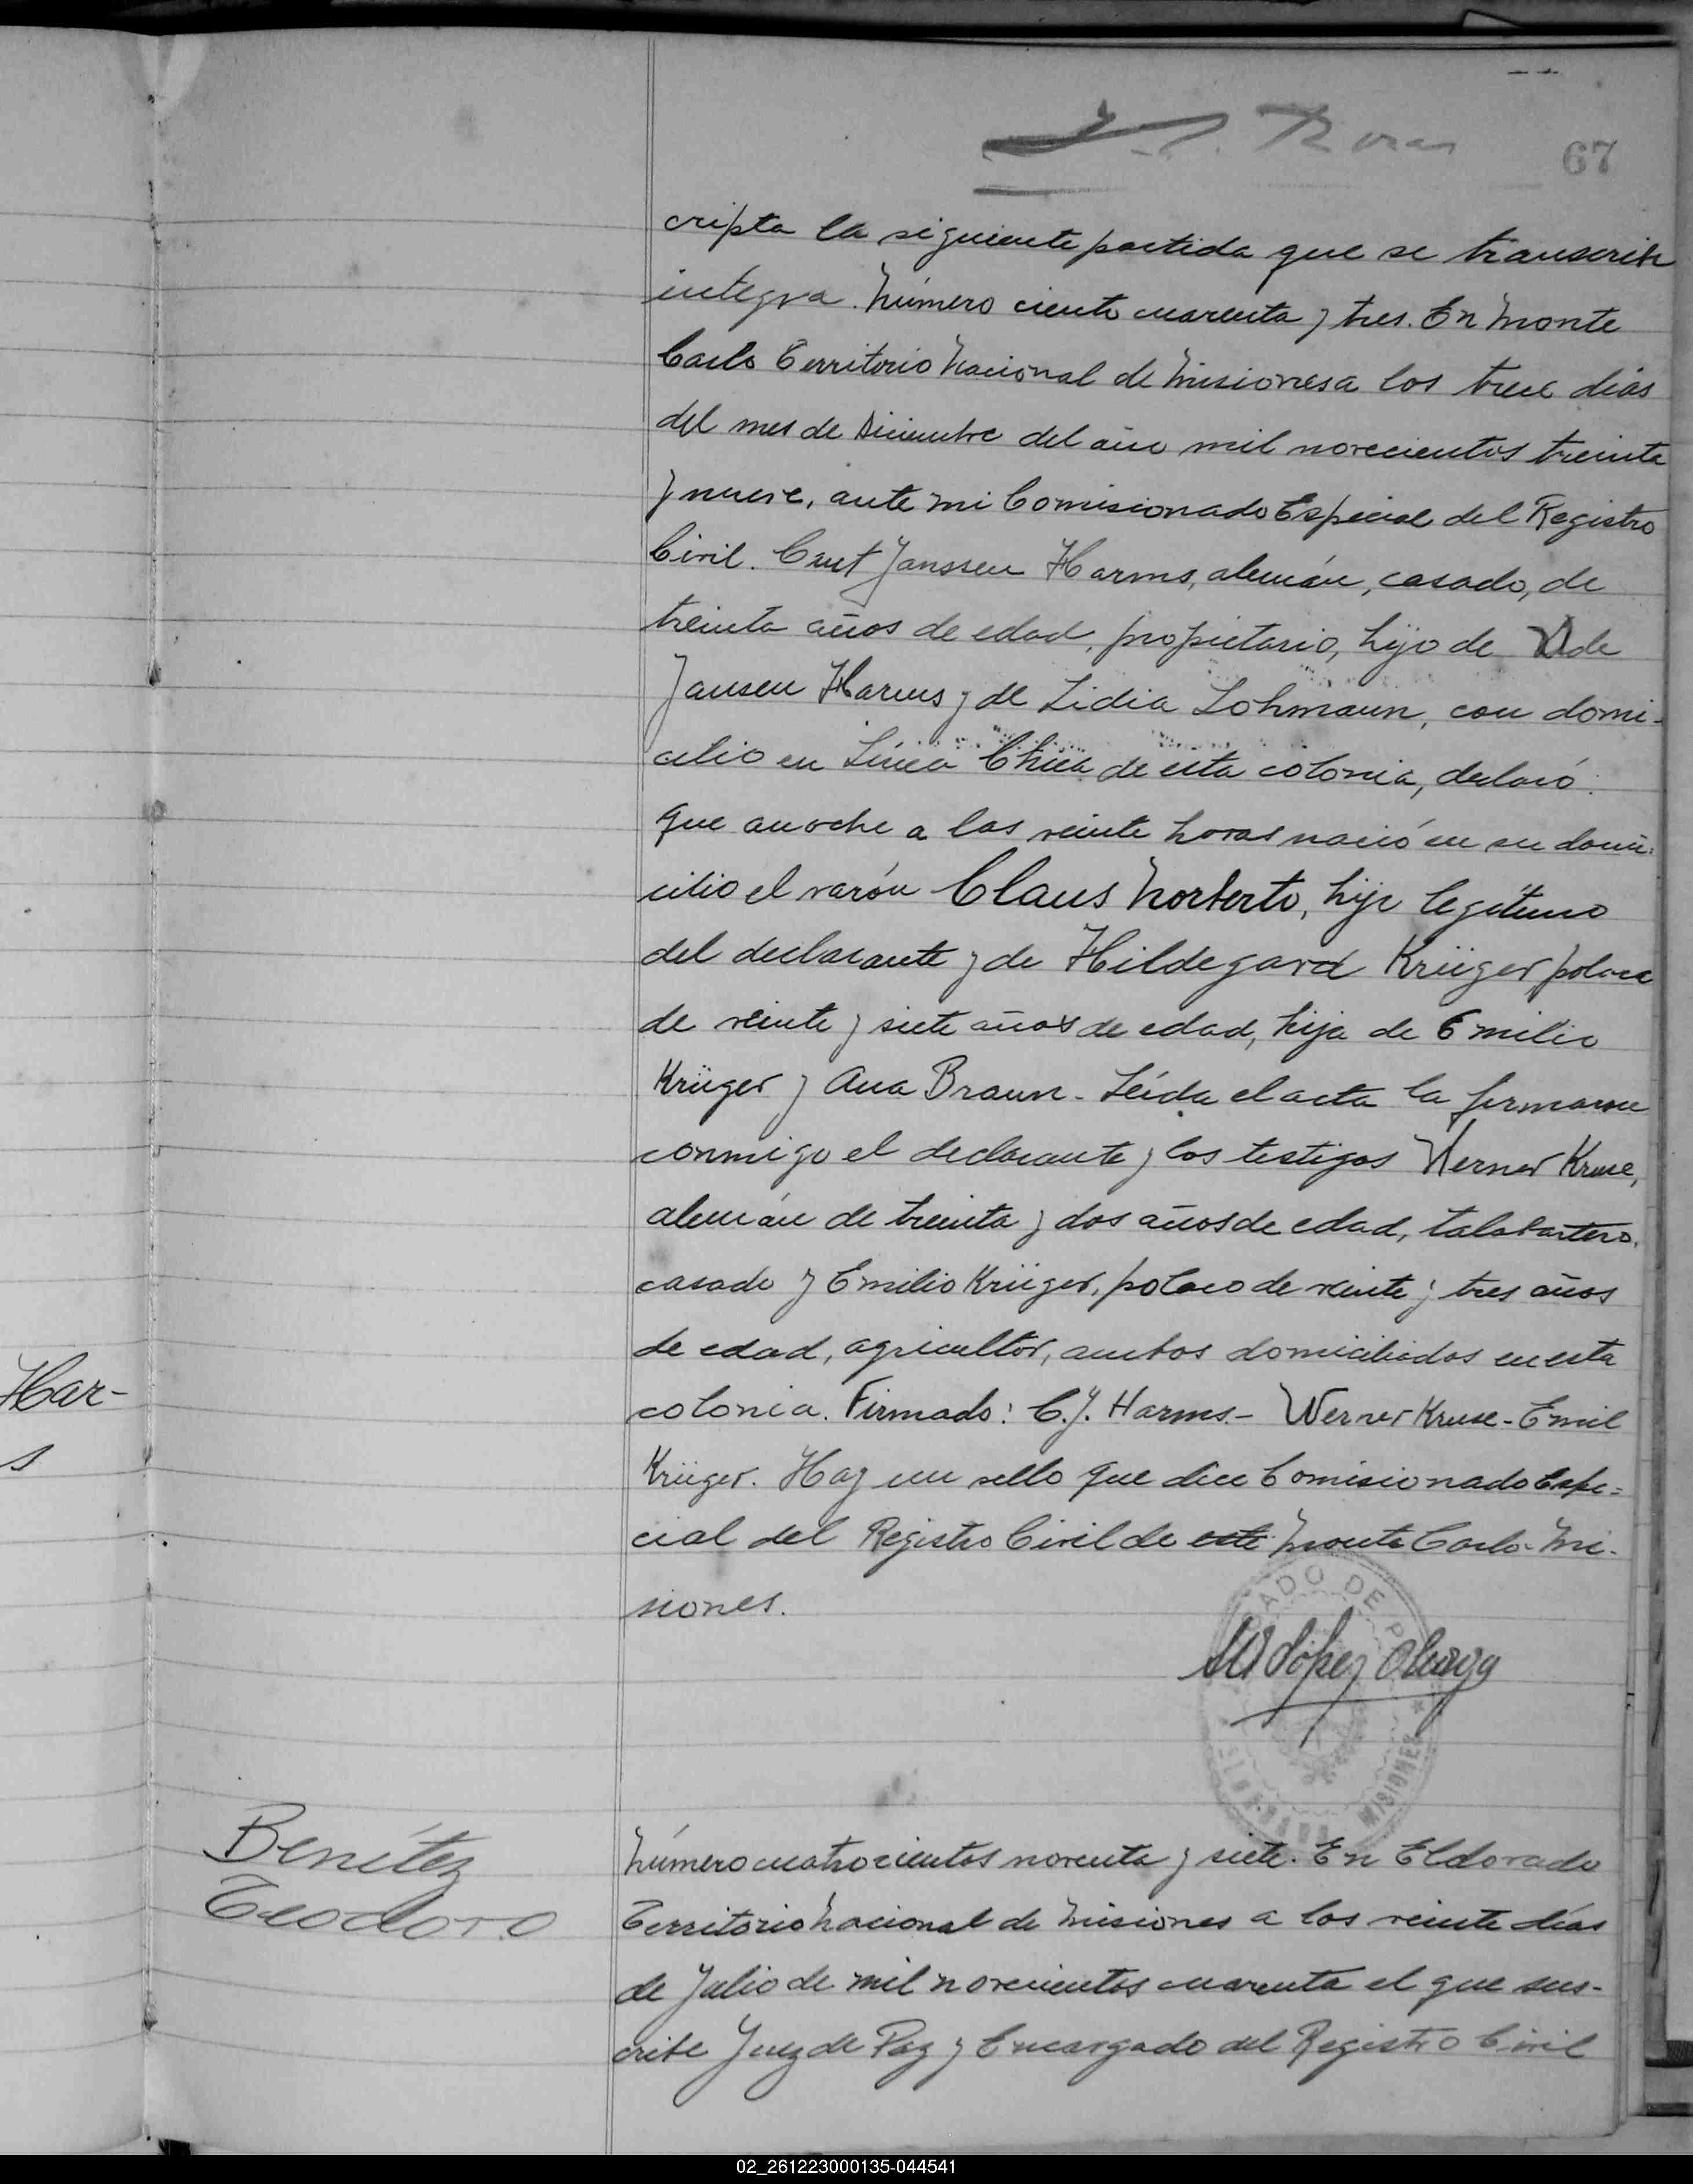 67
cripta la siguiente partida que se transcribe
integra. Número ciento cuarenta y tres. En Monte
Carlo Territorio Nacional de Misiones a los trece días
del mes de Diciembre del año mil novecientos treinta
y nueve, ante mi Comisionado Especial del Registro
Civil. Curt Janssen Harms, alemán, casado, de
treinta años de edad, propietario, hijo de
Jansen Harms y de Lidia Lohmann, con domi-
cilio en Línea Chica de esta colonia, declaró:
que anoche a las veinte horas nació en su domi-
cilio el varón Claus Norberto, hijo legítimo
del declarante y de Hildegard Krüger, polaca
de veinte y siete años de edad, hija de Emilio
Krüger y Ana Braun. Leída el acta la firmaron
conmigo el declarante y los testigos Werner Kruse,
alemán de treinta y dos años de edad, talabartero,
casado y Emilio Krüger, polaco de veinte y tres años
de edad, agricultor, ambos domiciliados en esta
Har-
colonia. Firmado: C.J. Harms.- Werner Kruse - Emil
s
Krüger. Hay un sello que dice Comisionado Espe=
cial del Registro Civil de este Monte Carlo - Mi-
siones.
López
ELDORADO MISIONES
Benítez
Teodoro
Número cuatrocientos noventa y siete. En Eldorado
Territorio Nacional de Misiones a los veinte días
de Julio de mil novecientos cuarenta el que sus-
cribe Juez de Paz y Encargado del Registro Civil
02_261223000135-044541